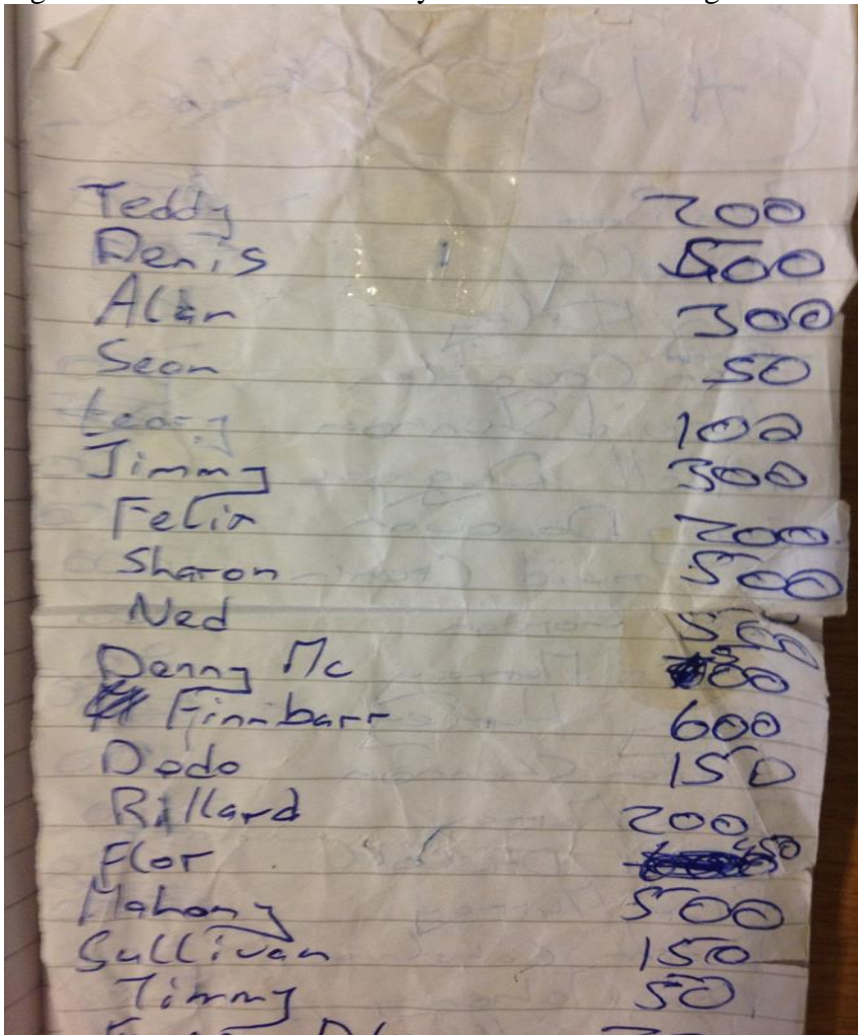 Teddy 200
Denis 500
Alan 300
Sean 50
Leary 100
Jimmy 300
Felix 200
Sharon 500
Ned 500
Denny Mc
Finnbarr 600
Dodo 150
Rillard 200
Flor 450
Mahony 500
Sullivan 150
Timmy 50